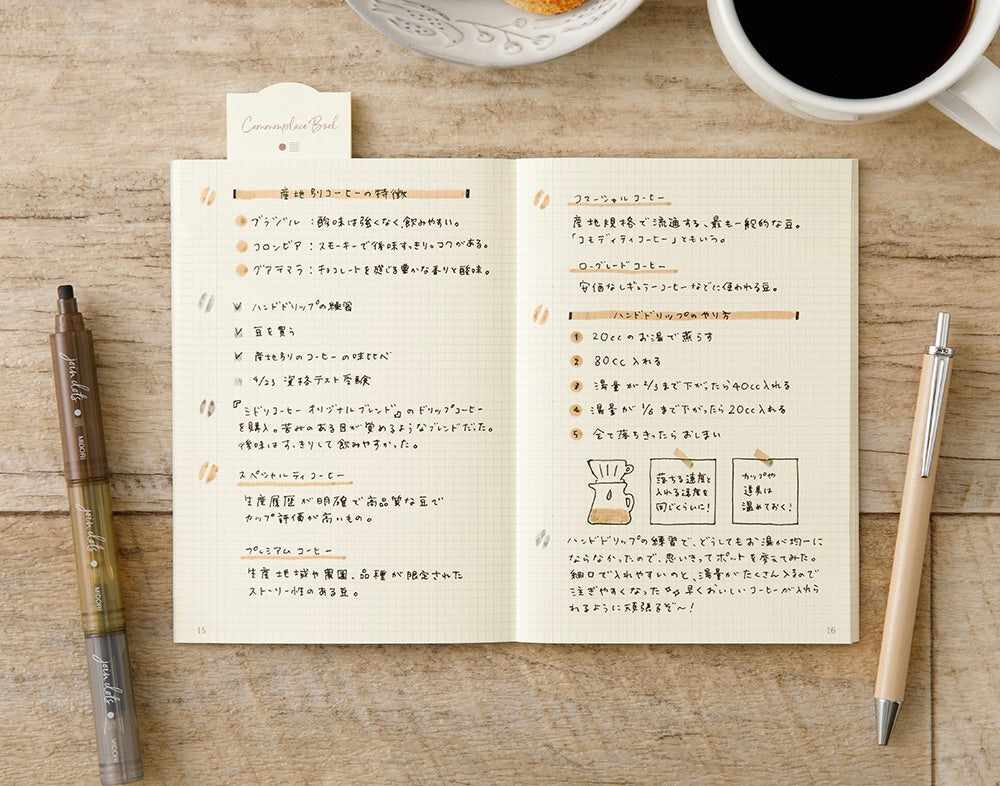 Commonplace Book
産地別コーヒーの特徴
ブラジル：酸味は強くなく、飲みやすい。
コロンビア：スモーキーで後味すっきり。コクがある。
グアテマラ：チョコレートを感じる豊かな香りと酸味。
ハンドドリップの練習
豆を買う
産地別のコーヒーの味比べ
4/23 資格テスト受験
『ミドリコーヒー オリジナルブレンド』のドリップコーヒー
を購入。苦みのある目が覚めるようなブレンドだった。
後味はすっきりして飲みやすかった。
スペシャルティコーヒー
生産履歴が明確で高品質な豆で
カップ評価が高いもの。
プレミアムコーヒー
生産地域や農園、品種が限定された
ストーリー性のある豆。
15
コマーシャルコーヒー
産地規格で流通する、最も一般的な豆。
「コモディティコーヒー」ともいう。
ローグレードコーヒー
安価なレギュラーコーヒーなどに使われる豆。
ハンドドリップのやり方
1 20ccのお湯で蒸らす
2 80cc入れる
3 湯量が2/3まで下がったら40cc入れる
4 湯量が1/6まで下がったら20cc入れる
5 全て落ちきったらおしまい
落ちる速度と
入れる速度を
同じくらいに！
カップや
道具は
温めておく！
ハンドドリップの練習で、どうしてもお湯が均一に
ならなかったので、思いきってポットを変えてみた。
細口で入れやすいのと、湯量がたくさん入るので
注ぎやすくなった 早くおいしいコーヒーが入れら
れるように頑張るぞ〜！
16
join dots
MIDORI
join dots
MIDORI
join dots
MIDORI